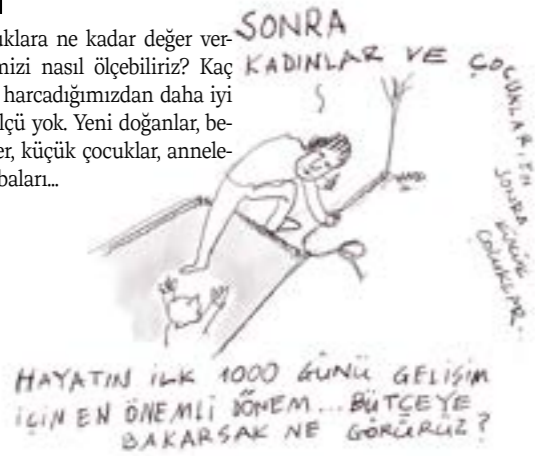 uklara ne kadar değer ver-
mizi nasıl ölçebiliriz? Kaç
harcadığımızdan daha iyi
lçü yok. Yeni doğanlar, be-
er, küçük çocuklar, annele-
baları...
SONRA
KADINLAR VE ÇOCUKLAR, EN
SONRA
KÜÇÜK
ÇOCUKLAR..
HAYATIN İLK 1000 GÜNÜ GELİŞİM
İÇİN EN ÖNEMLİ DÖNEM... BÜTÇEYE
BAKARSAK NE GÖRÜRÜZ?